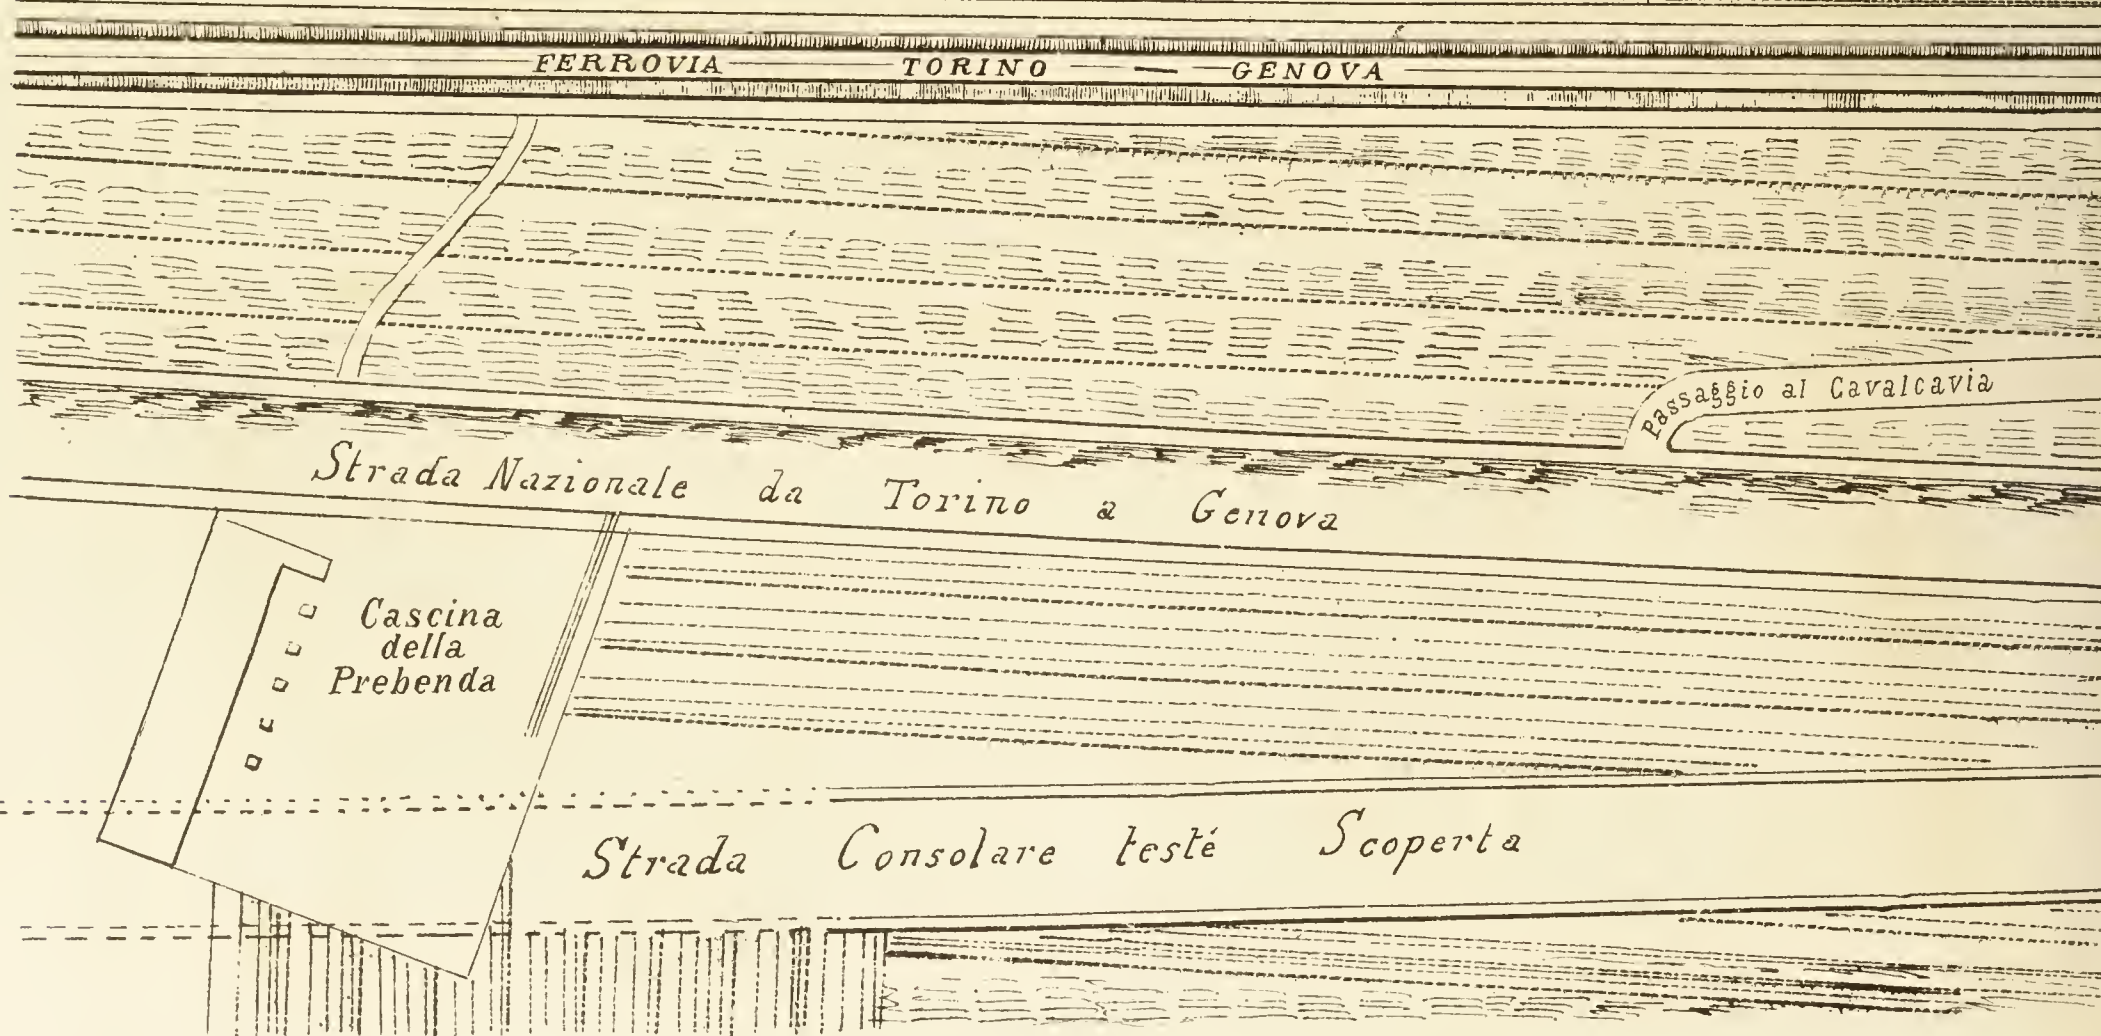 FERROVIA TORINO — GENOVA
Passaggio al Cavalcavia
Strada Nazionale da Torino a Genova
Cascina
della
Prebenda
Strada Consolare testé Scoperta